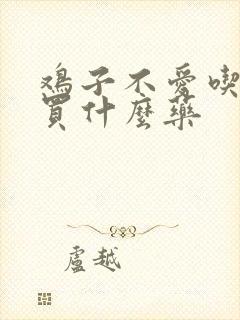 鸡子不爱喫
買什麼藥
盧越